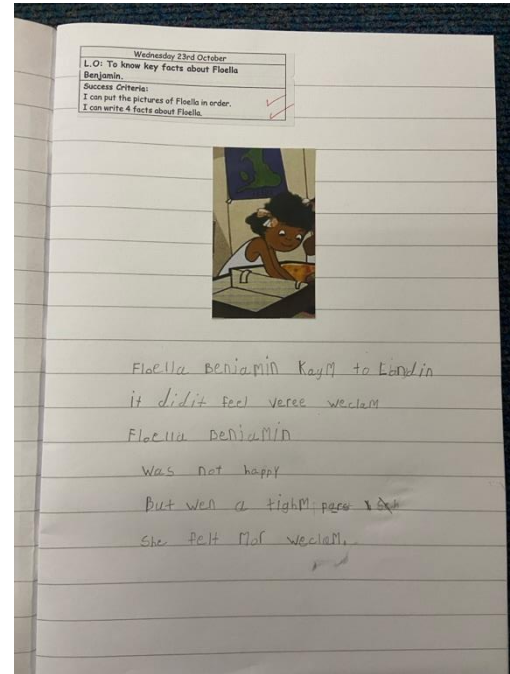 Wednesday 23rd October
L.O: To know key facts about Floella
Benjamin.
Success Criteria:
I can put the pictures of Floella in order.
I can write 4 facts about Floella.
Floella Benjamin Kaym to Londin
it didit feel veree weclam
Floella Benjamin
was not happy
But wen a tighm
She felt mor weclam.